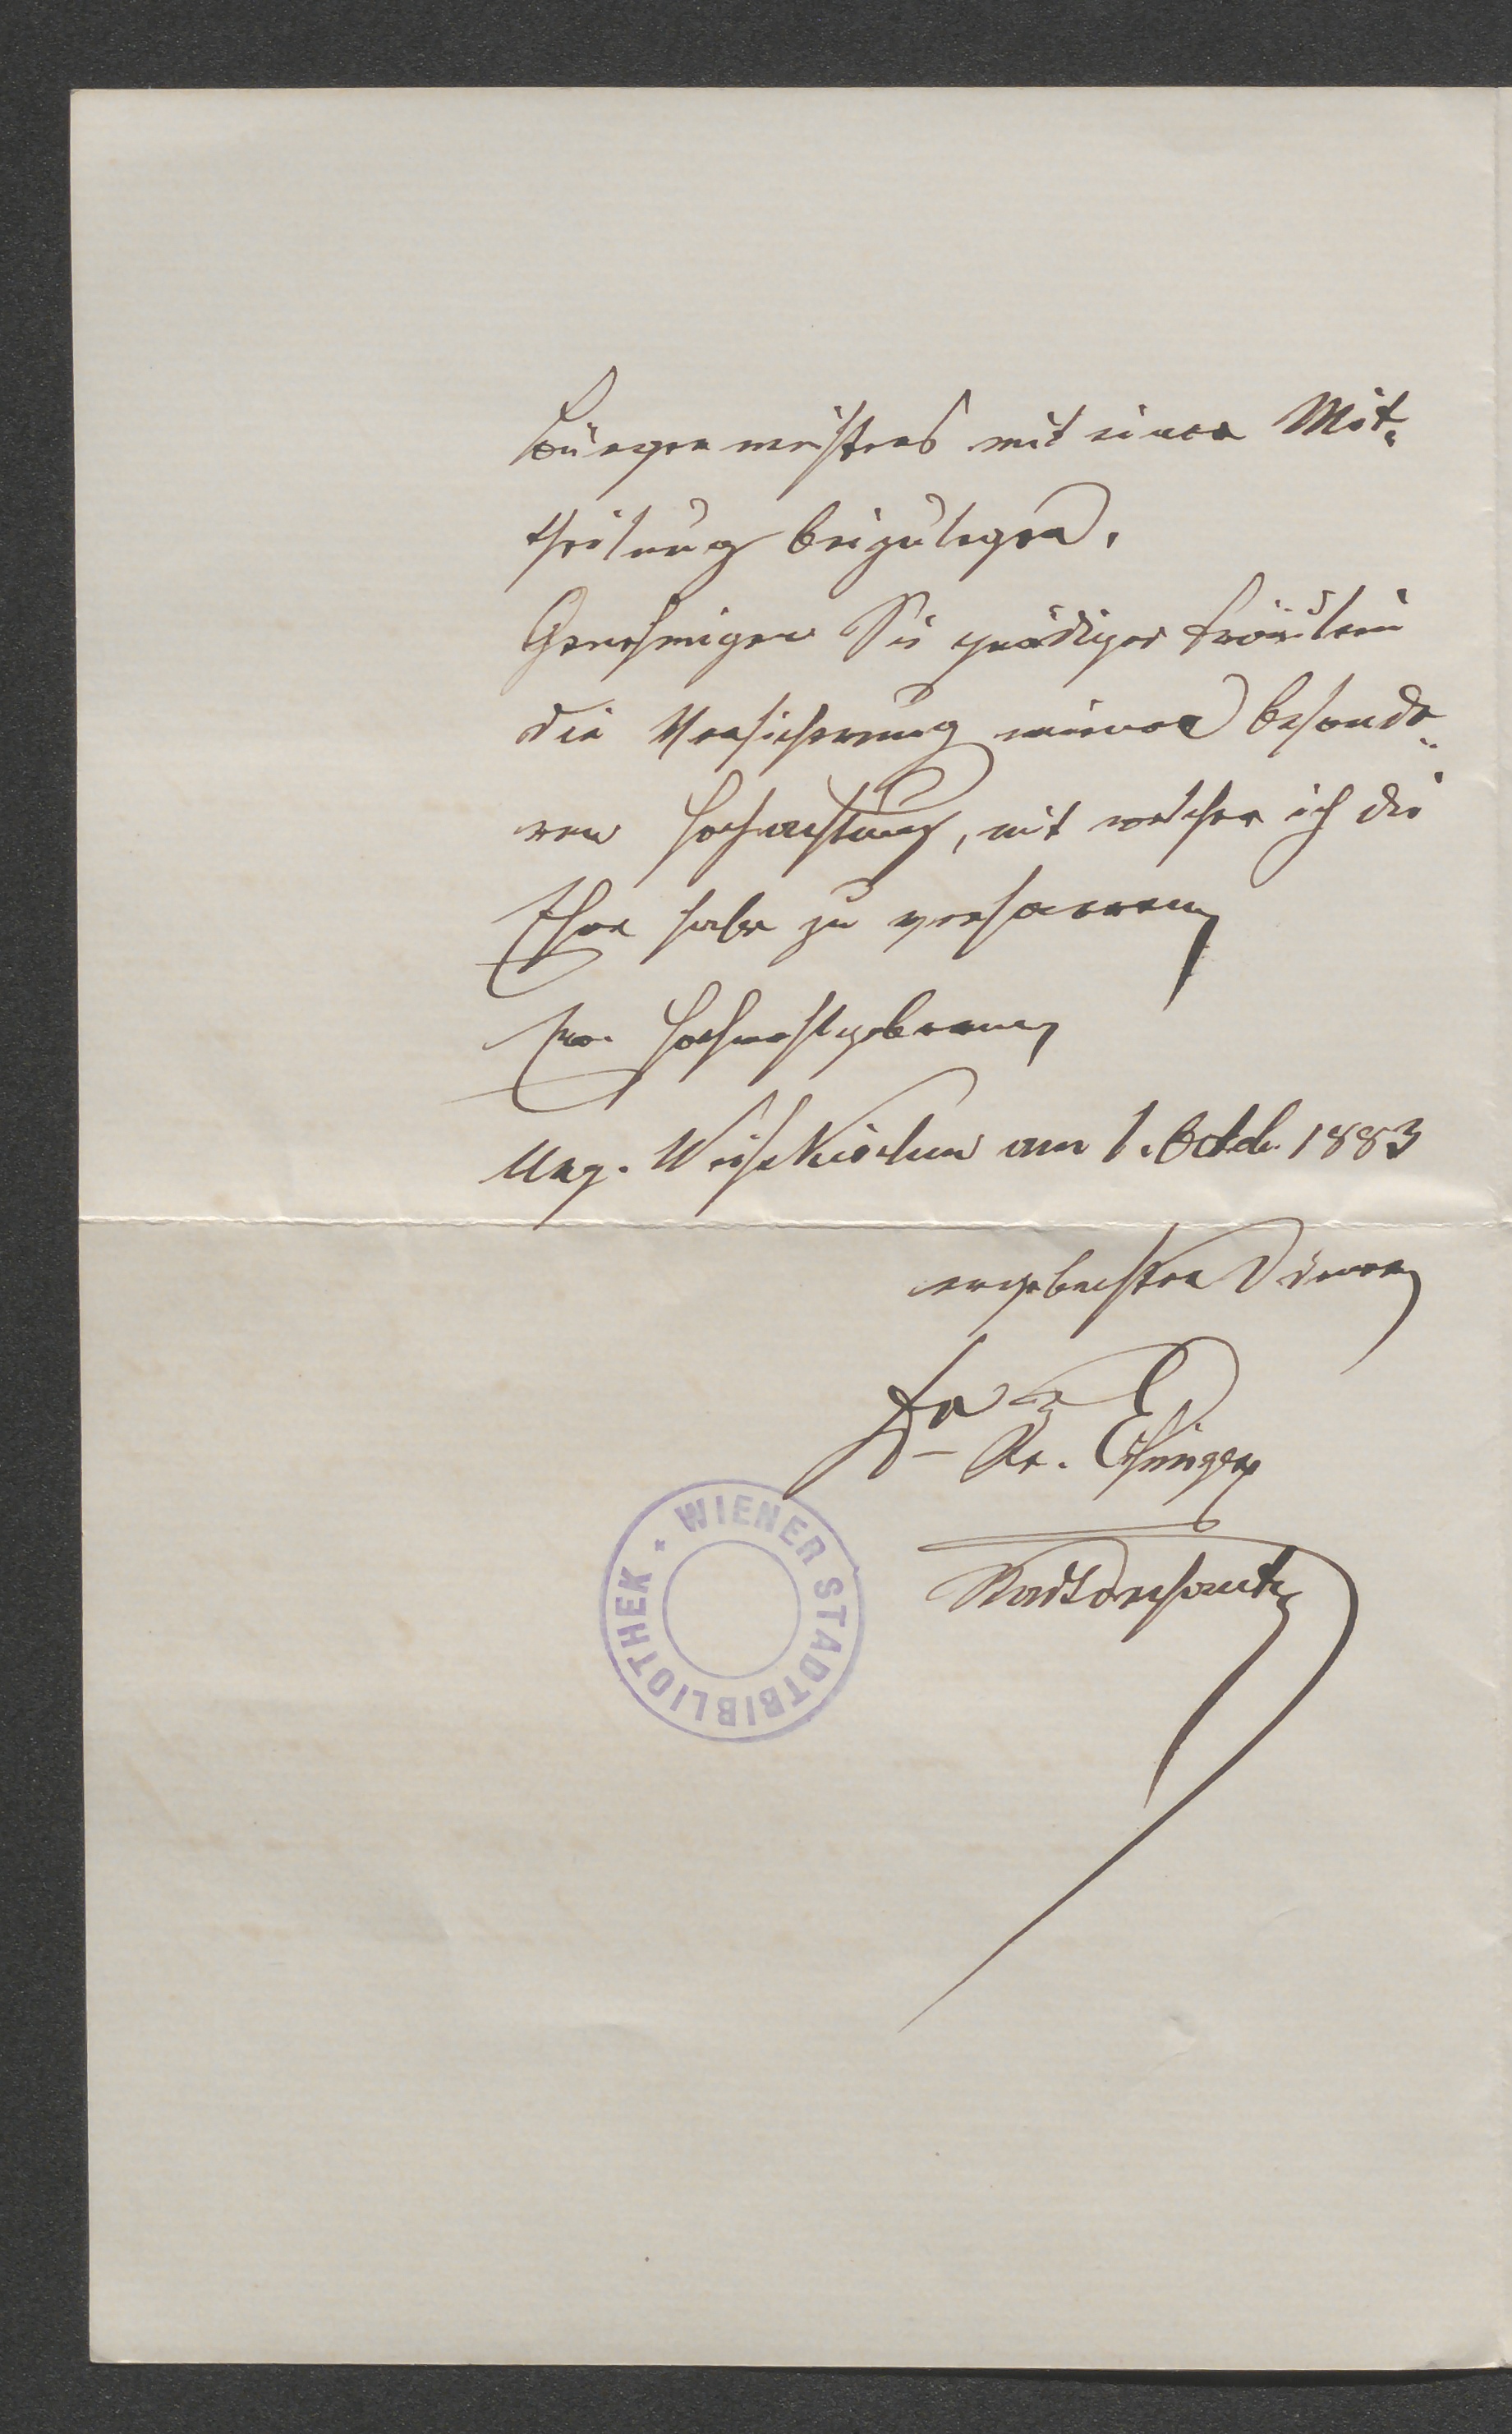 Bürgermeisters mit einer Mit-
theilung beizulegen.
Genehmigen Sie gnädiges Fräulein
die Versicherung meiner besonde-
ren Hochachtung, mit welcher ich die
Ehre habe zu verharren
Euer Hochwohlgeboren
Ung. Weißkirchen am 1. Octob. 1883
ergebenster Diener
Dr. Ehinger
Stadt
WIENER STADTBIBLIOTHEK